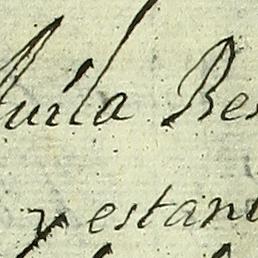 Auila Be
y estan